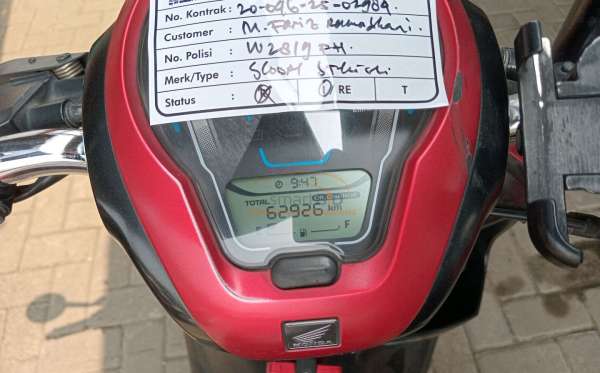 No. Kontrak : 20-096-25-02984
Customer : M. Fariz Ramadhani.
No. Polisi : W 2819 PH
Merk/Type :
Status : R RE T
9:47
TOTAL
62926 km
F
HONDA